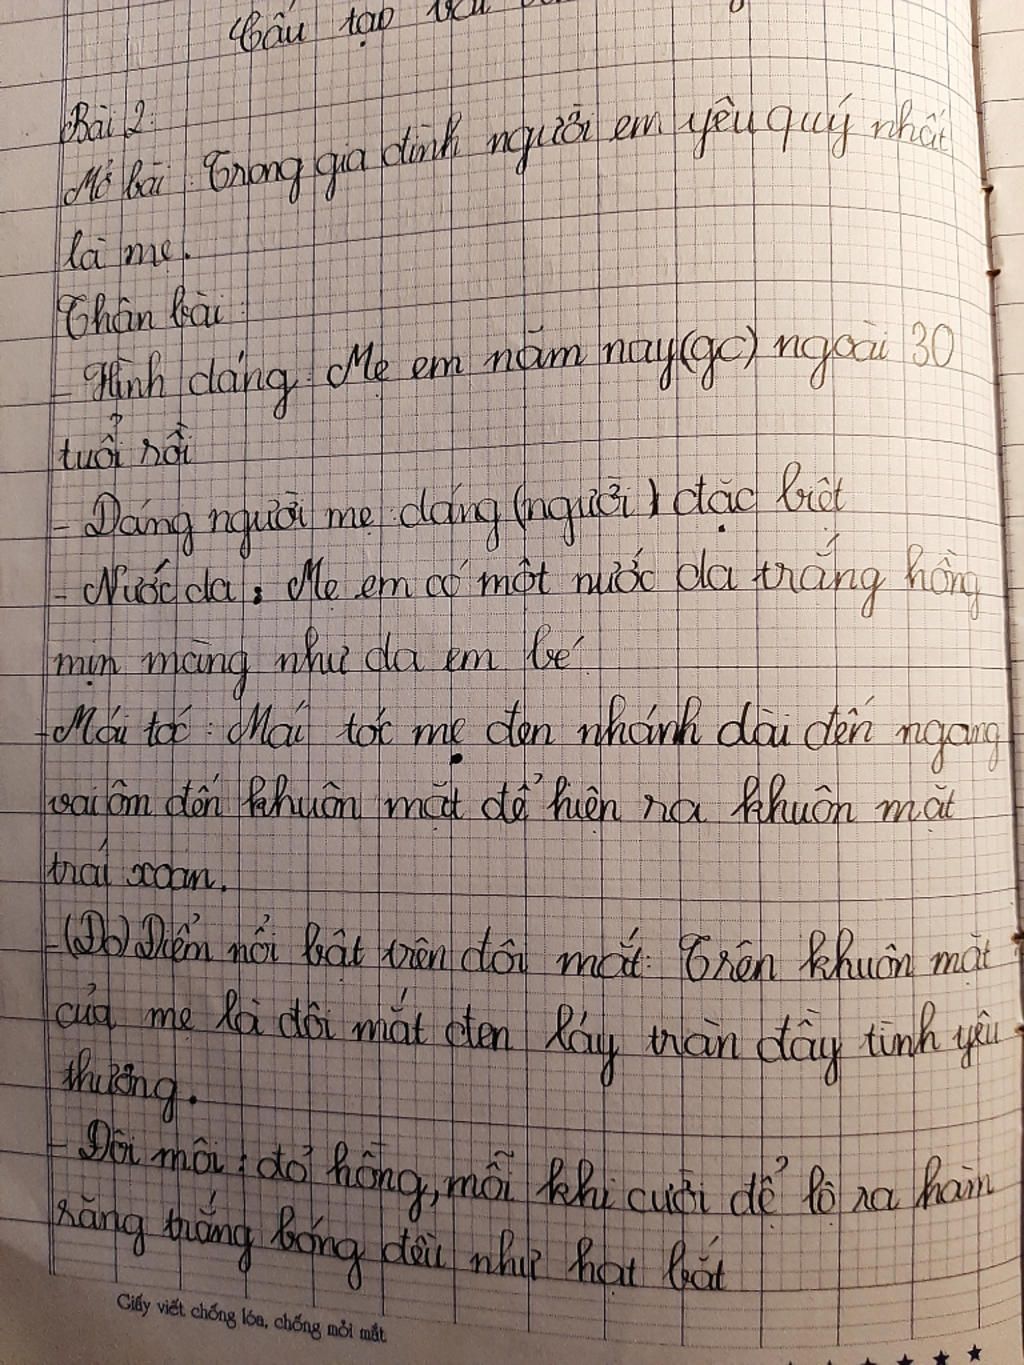 Cấu tạo
Bài 2:
Mở bài: Trong gia đình người em yêu quý nhất
là mẹ.
Thân bài:
- Hình dáng: Mẹ em năm nay(gc) ngoài 30
tuổi rồi
- Dáng người mẹ: dáng (người) đặc biệt
- Nước da: Mẹ em có một nước da trắng hồng
mịn màng như da em bé
- Mái tóc: Mái tóc mẹ đen nhánh dài đến ngang
vai ôm đến khuôn mặt để hiện ra khuôn mặt
trái xoan.
- (Đb) Điểm nổi bật trên đôi mắt: Trên khuôn mặt
của mẹ là đôi mắt đen láy tràn đầy tình yêu
thương.
- Đôi môi: đỏ hồng, mỗi khi cười để lộ ra hàm
răng trắng bóng đều như hạt bắt
Giấy viết chống lóa, chống mỏi mắt